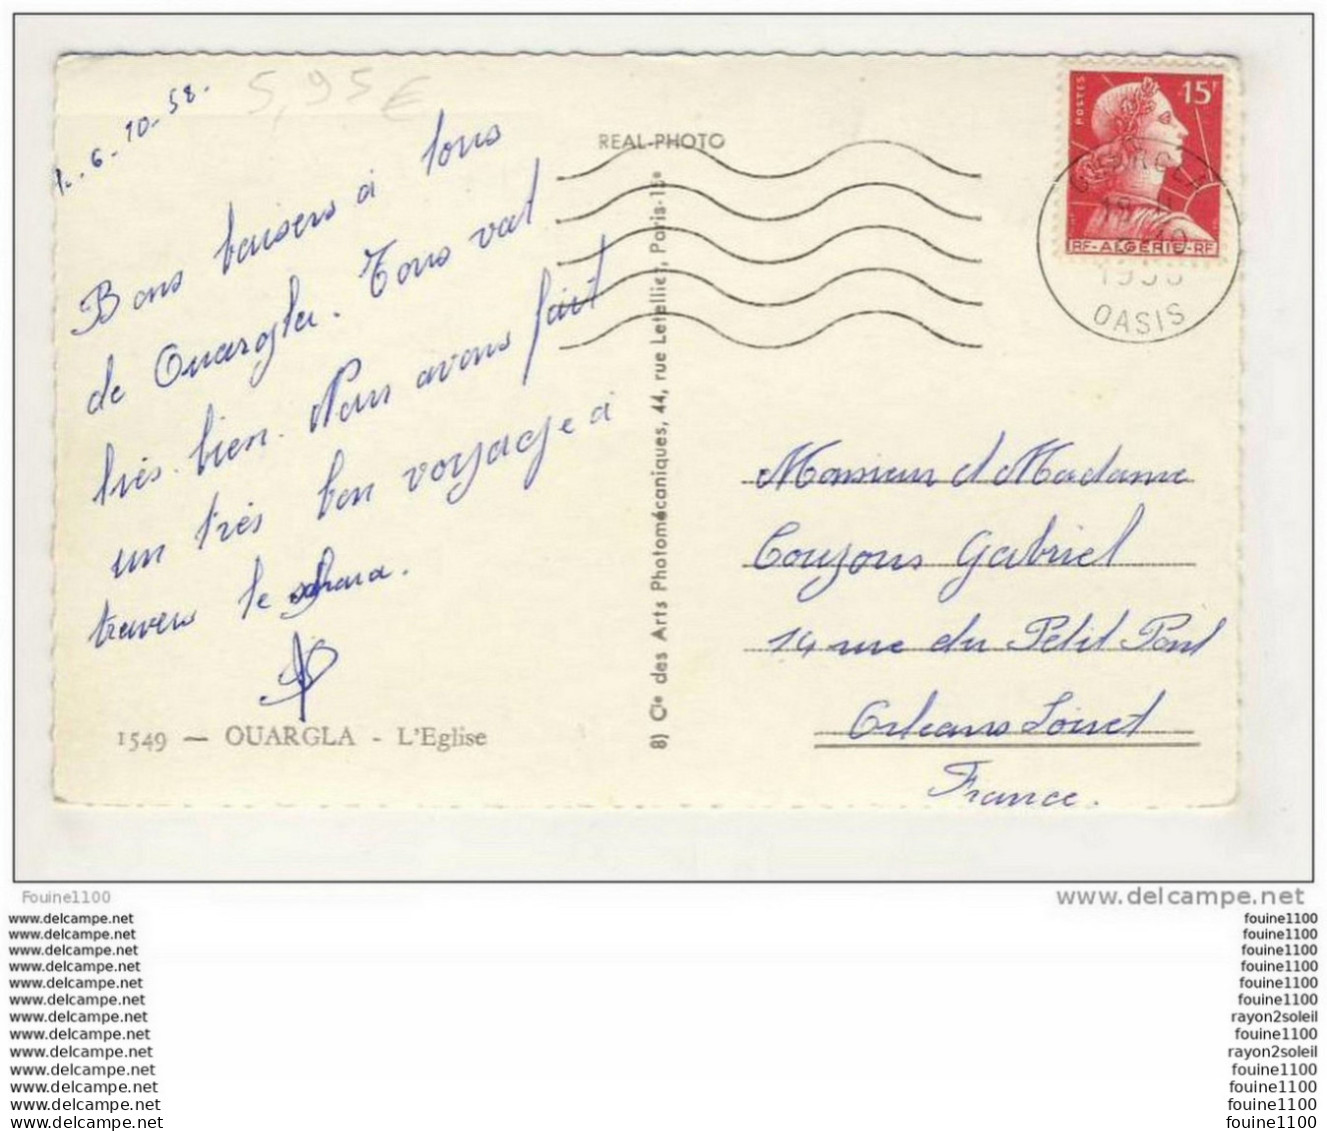 6-10-58.
5,95 €
Bons baisers à tous
de Ouargla. Tous vat
très bien. Nous avons fait
un très bon voyage à
travers le sahara.
1549 — OUARGLA - L'Eglise
REAL-PHOTO
8) Cie des Arts Photomécaniques, 44, rue Letellier, Paris-15e
POSTES
15F
RF-ALGERIE-RF
OUARGLA
OASIS
Monsieur et Madame
Couzons Gabriel
14 rue du Petit Pont
Orléans Loiret
France.
Fouine1100
www.delcampe.net
www.delcampe.net
www.delcampe.net
www.delcampe.net
www.delcampe.net
www.delcampe.net
www.delcampe.net
www.delcampe.net
www.delcampe.net
www.delcampe.net
www.delcampe.net
www.delcampe.net
www.delcampe.net
www.delcampe.net
fouine1100
fouine1100
fouine1100
fouine1100
fouine1100
fouine1100
rayon2soleil
fouine1100
rayon2soleil
fouine1100
fouine1100
fouine1100
fouine1100